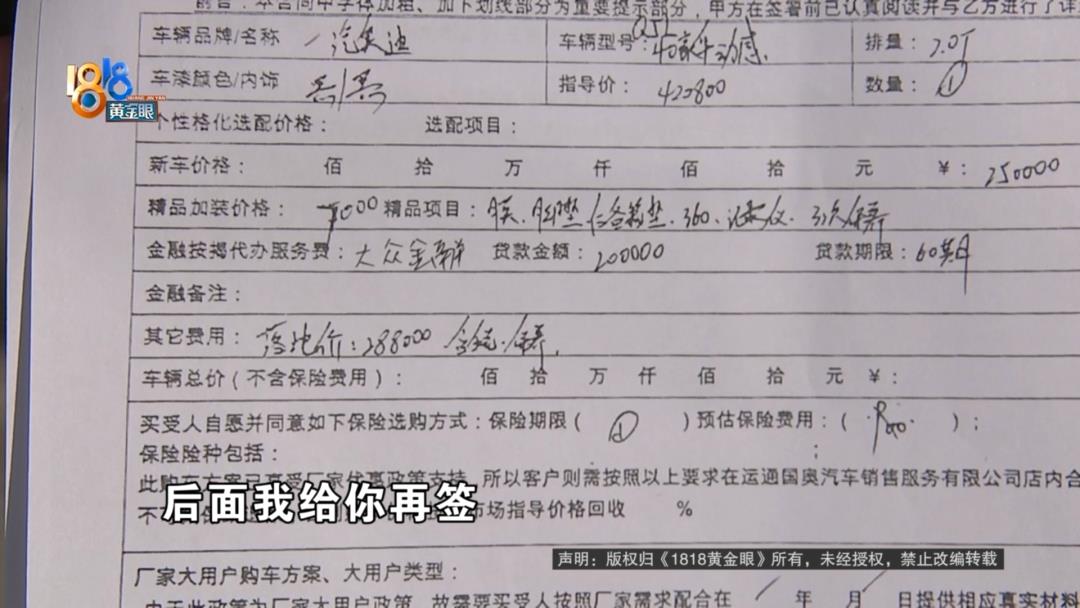 前言：本合同中字体加粗、加下划线部分为重要提示部分，甲方在签署前已认真阅读并与乙方进行了详
车辆品牌/名称 一汽奥迪 车辆型号： 排量：2.0T
1818黄金眼
车漆颜色/内饰 黑/黑 指导价：420800 数量：①
个性格化选配价格： 选配项目：
新车价格： 佰 拾 万 仟 佰 拾 元 ¥：250000
精品加装价格： 精品项目：膜、脚垫 360、记录仪、3次保养
金融按揭代办服务费：大众金融 贷款金额：200000 贷款期限：60期
金融备注：
其它费用：落地价：288000 含税、保养
车辆总价（不含保险费用）： 佰 拾 万 仟 佰 拾 元 ¥：
买受人自愿并同意如下保险选购方式：保险期限（ ① ）预估保险费用：（ ）；
保险险种包括： ；
此购车方案已享受厂家优惠政策支持，所以客户则需按照以上要求在运通国奥汽车销售服务有限公司店内合
不 市场指导价格回收 %
后面我给你再签
声明：版权归《1818黄金眼》所有，未经授权，禁止改编转载
厂家大用户购车方案、大用户类型：
由于此政策为厂家大用户政策，故需要买受人按照厂家需求配合在 年 月 日提供相应真实材料